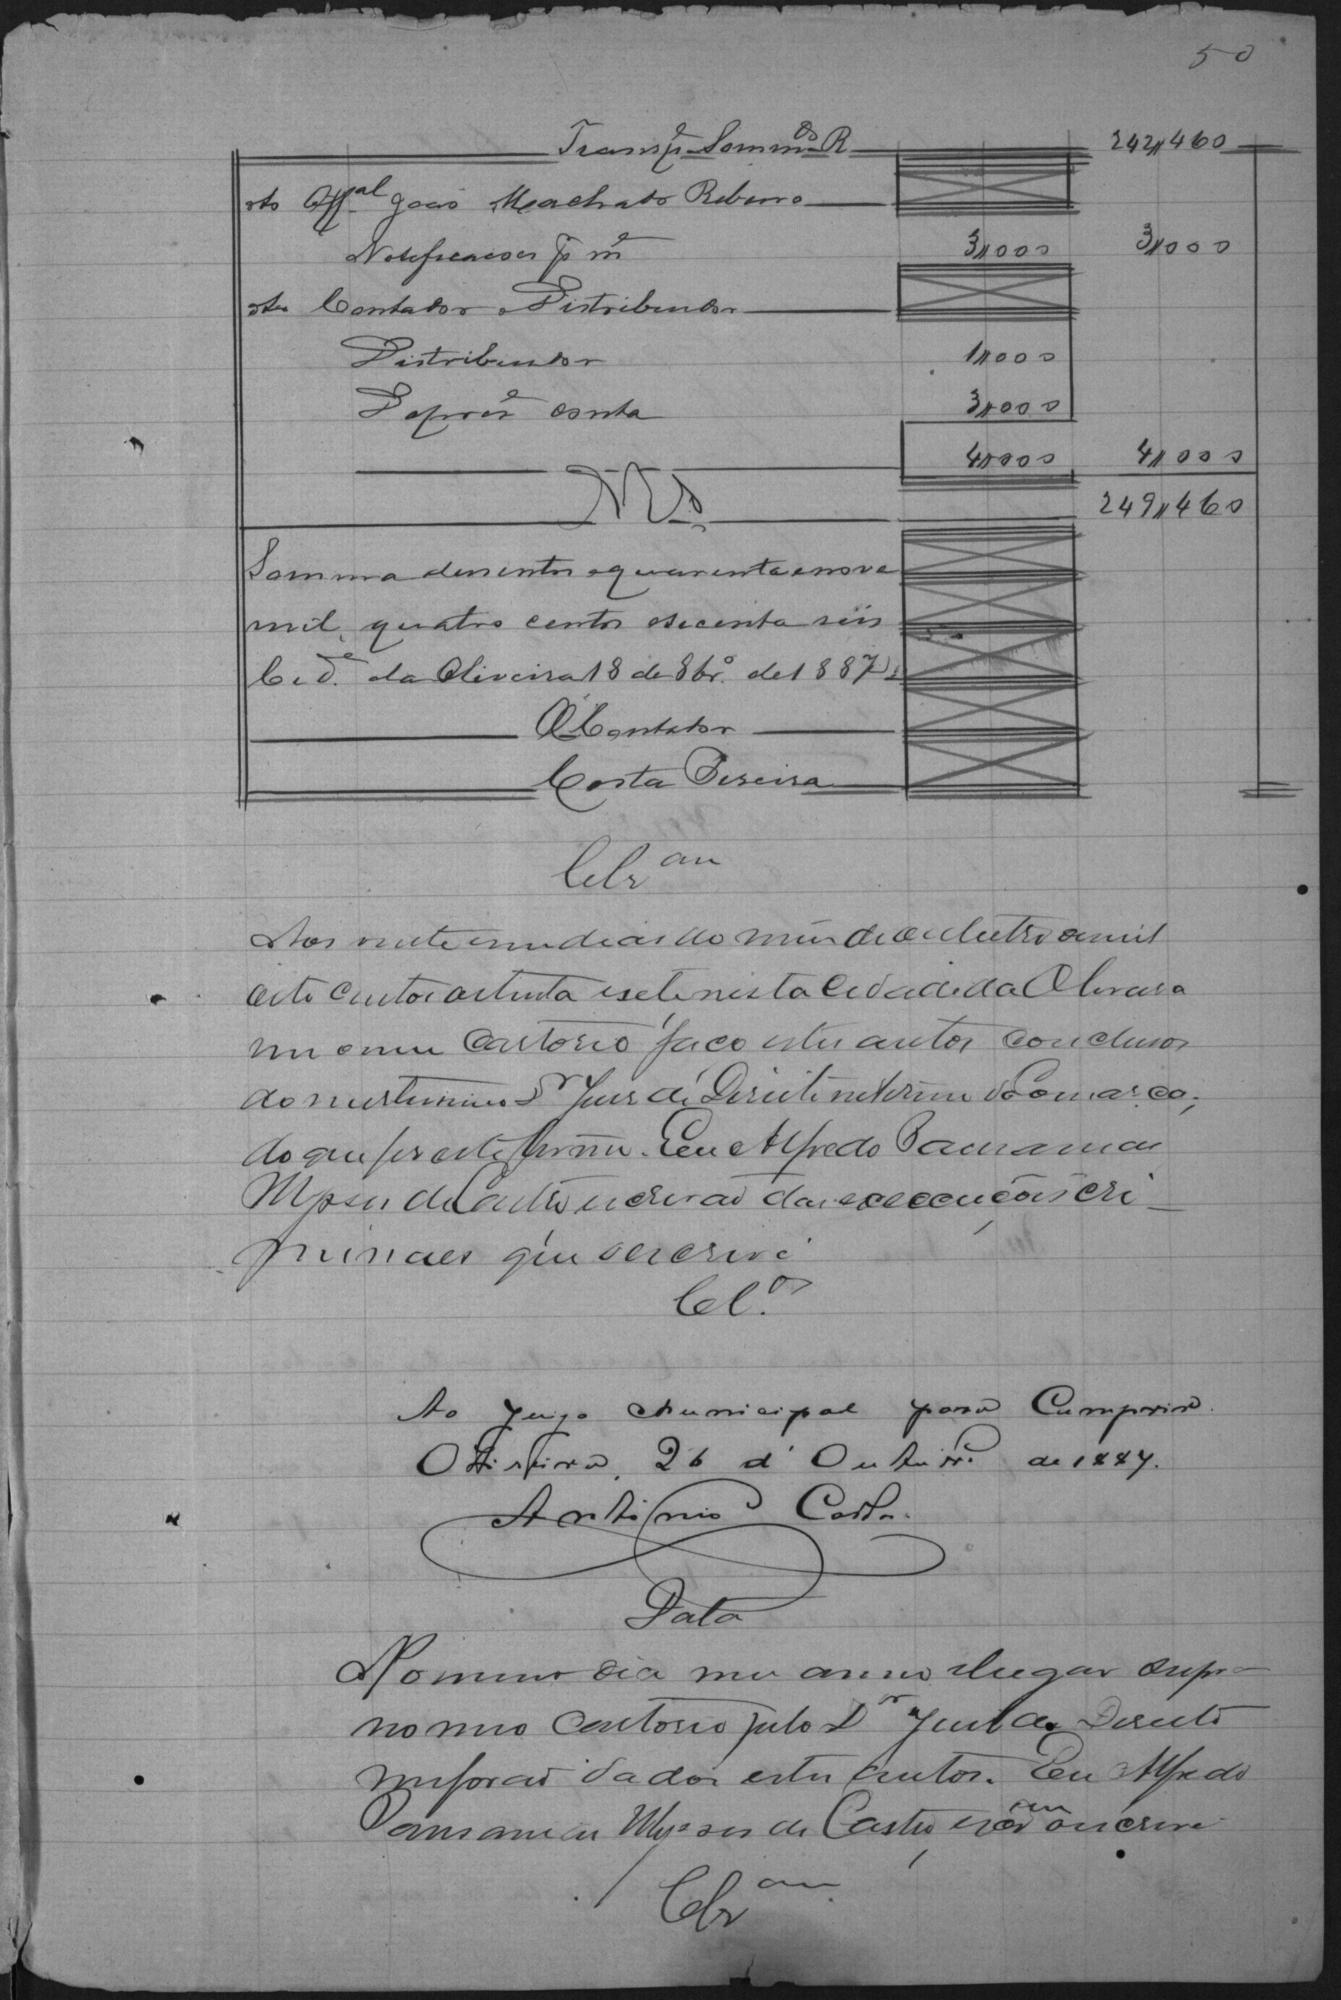 50
Transpe Sommas R 242,,460
Ao Offal João Machado Ribeiro
Notificações 3,,000 3,,000
Ao Contador e Distribuidor
Distribuidor 1,,000
conta 3,,000
4,,000 4,,000
Rs 249,,460
Somma dusentos e quarenta e nove
mil, quatro centos e secenta reis
Cide da Oliveira 18 de 8bro de 1887
O Contador
Costa Pereira
Clsam
Aos vinte e um dias do mes de Outubro de mil
oito centos oitenta e sete nesta Cidade da Oliveira
em o meu Cartorio faço estes autos conclusos
ao Dr Juis de Direito interino da Comarca;
do que fis este termo. Eu Alfredo Pausanias
Ulysses de Castro escrivão das execuções cri
minaes que o escrevi
Clo.
Ao Juizo Municipal para Cumprir.
Oliveira, 26 d' Outubro de 1887.
Antonio Costa.
Data
No mesmo dia mes anno e lugar supra
no meo Cartorio pelo Dr Juis de Direito
me forão dados estes autos. Eu Alfredo
Pausanias Ulysses de Castro escram o escrevi
Clsam